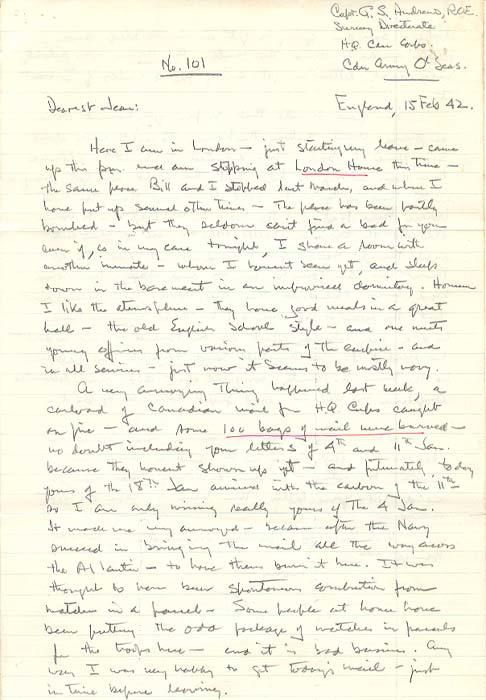 Capt. G. S. Andrews, RCE.
Survey Directorate
HQ Cdn Corps.
Cdn Army O'Seas.
No. 101
Dearest Jean:
England, 15 Feb 42.
Here I am in London – just starting my leave – came
up this pm. and am stopping at London House this time –
the same place Bill and I stopped last March, and where I
have put up several other times – The place has been partly
bombed – but they seldom can't find a bed for you
even if, as in my case tonight, I share a room with
another inmate – whom I haven't seen yet, and sleep
down in the basement in an improvised dormitory. However
I like the atmosphere – they have good meals in a great
hall – the old English School style – and one meets
young officers from various parts of the empire – and
in all services – just now it seems to be mostly navy.
A very annoying thing happened last week, a
carload of Canadian mail for HQ Corps caught
on fire – and some 100 bags of mail were burned –
no doubt including your letters of 4th and 11th Jan.
because they haven't shown up yet – and fortunately today
yours of the 18th Jan arrived with the carbon of the 11th
so I am only missing really yours of the 4 Jan.
It made me very annoyed – because after the Navy
succeed in bringing the mail all the way across
the Atlantic – to have them burn it here. It was
thought to have been spontaneous combustion from
matches in a parcel – Some people at home have
been putting the odd package of matches in parcels
for the troops here – and it is bad business. Any
way I was very happy to get today's mail – just
in time before leaving.